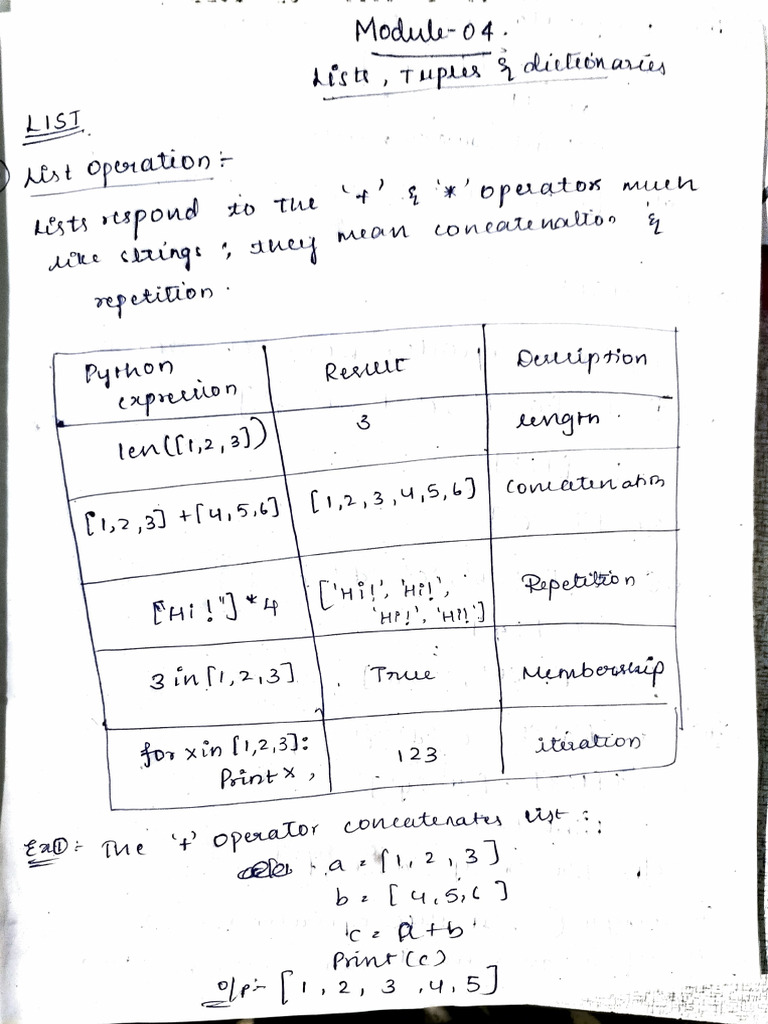 Module-04.
Lists, Tuples & dictionaries
LIST
List Operation :-
Lists respond to the '+' & '*' operator much
like strings ; they mean concatenation &
repetition.
Python expression | Result | Description
len([1,2,3]) | 3 | length
[1,2,3] + [4,5,6] | [1,2,3,4,5,6] | Concatenation
["Hi!"] * 4 | ['Hi!', 'Hi!', 'Hi!', 'Hi!'] | Repetition
3 in [1,2,3] | True | Membership
for x in [1,2,3]: Print x, | 1 2 3 | iteration
Ex① :- The '+' operator concatenates list :
a = [1, 2, 3]
b = [4,5,6]
c = a+b
Print(c)
o/p :- [1, 2, 3, 4, 5]